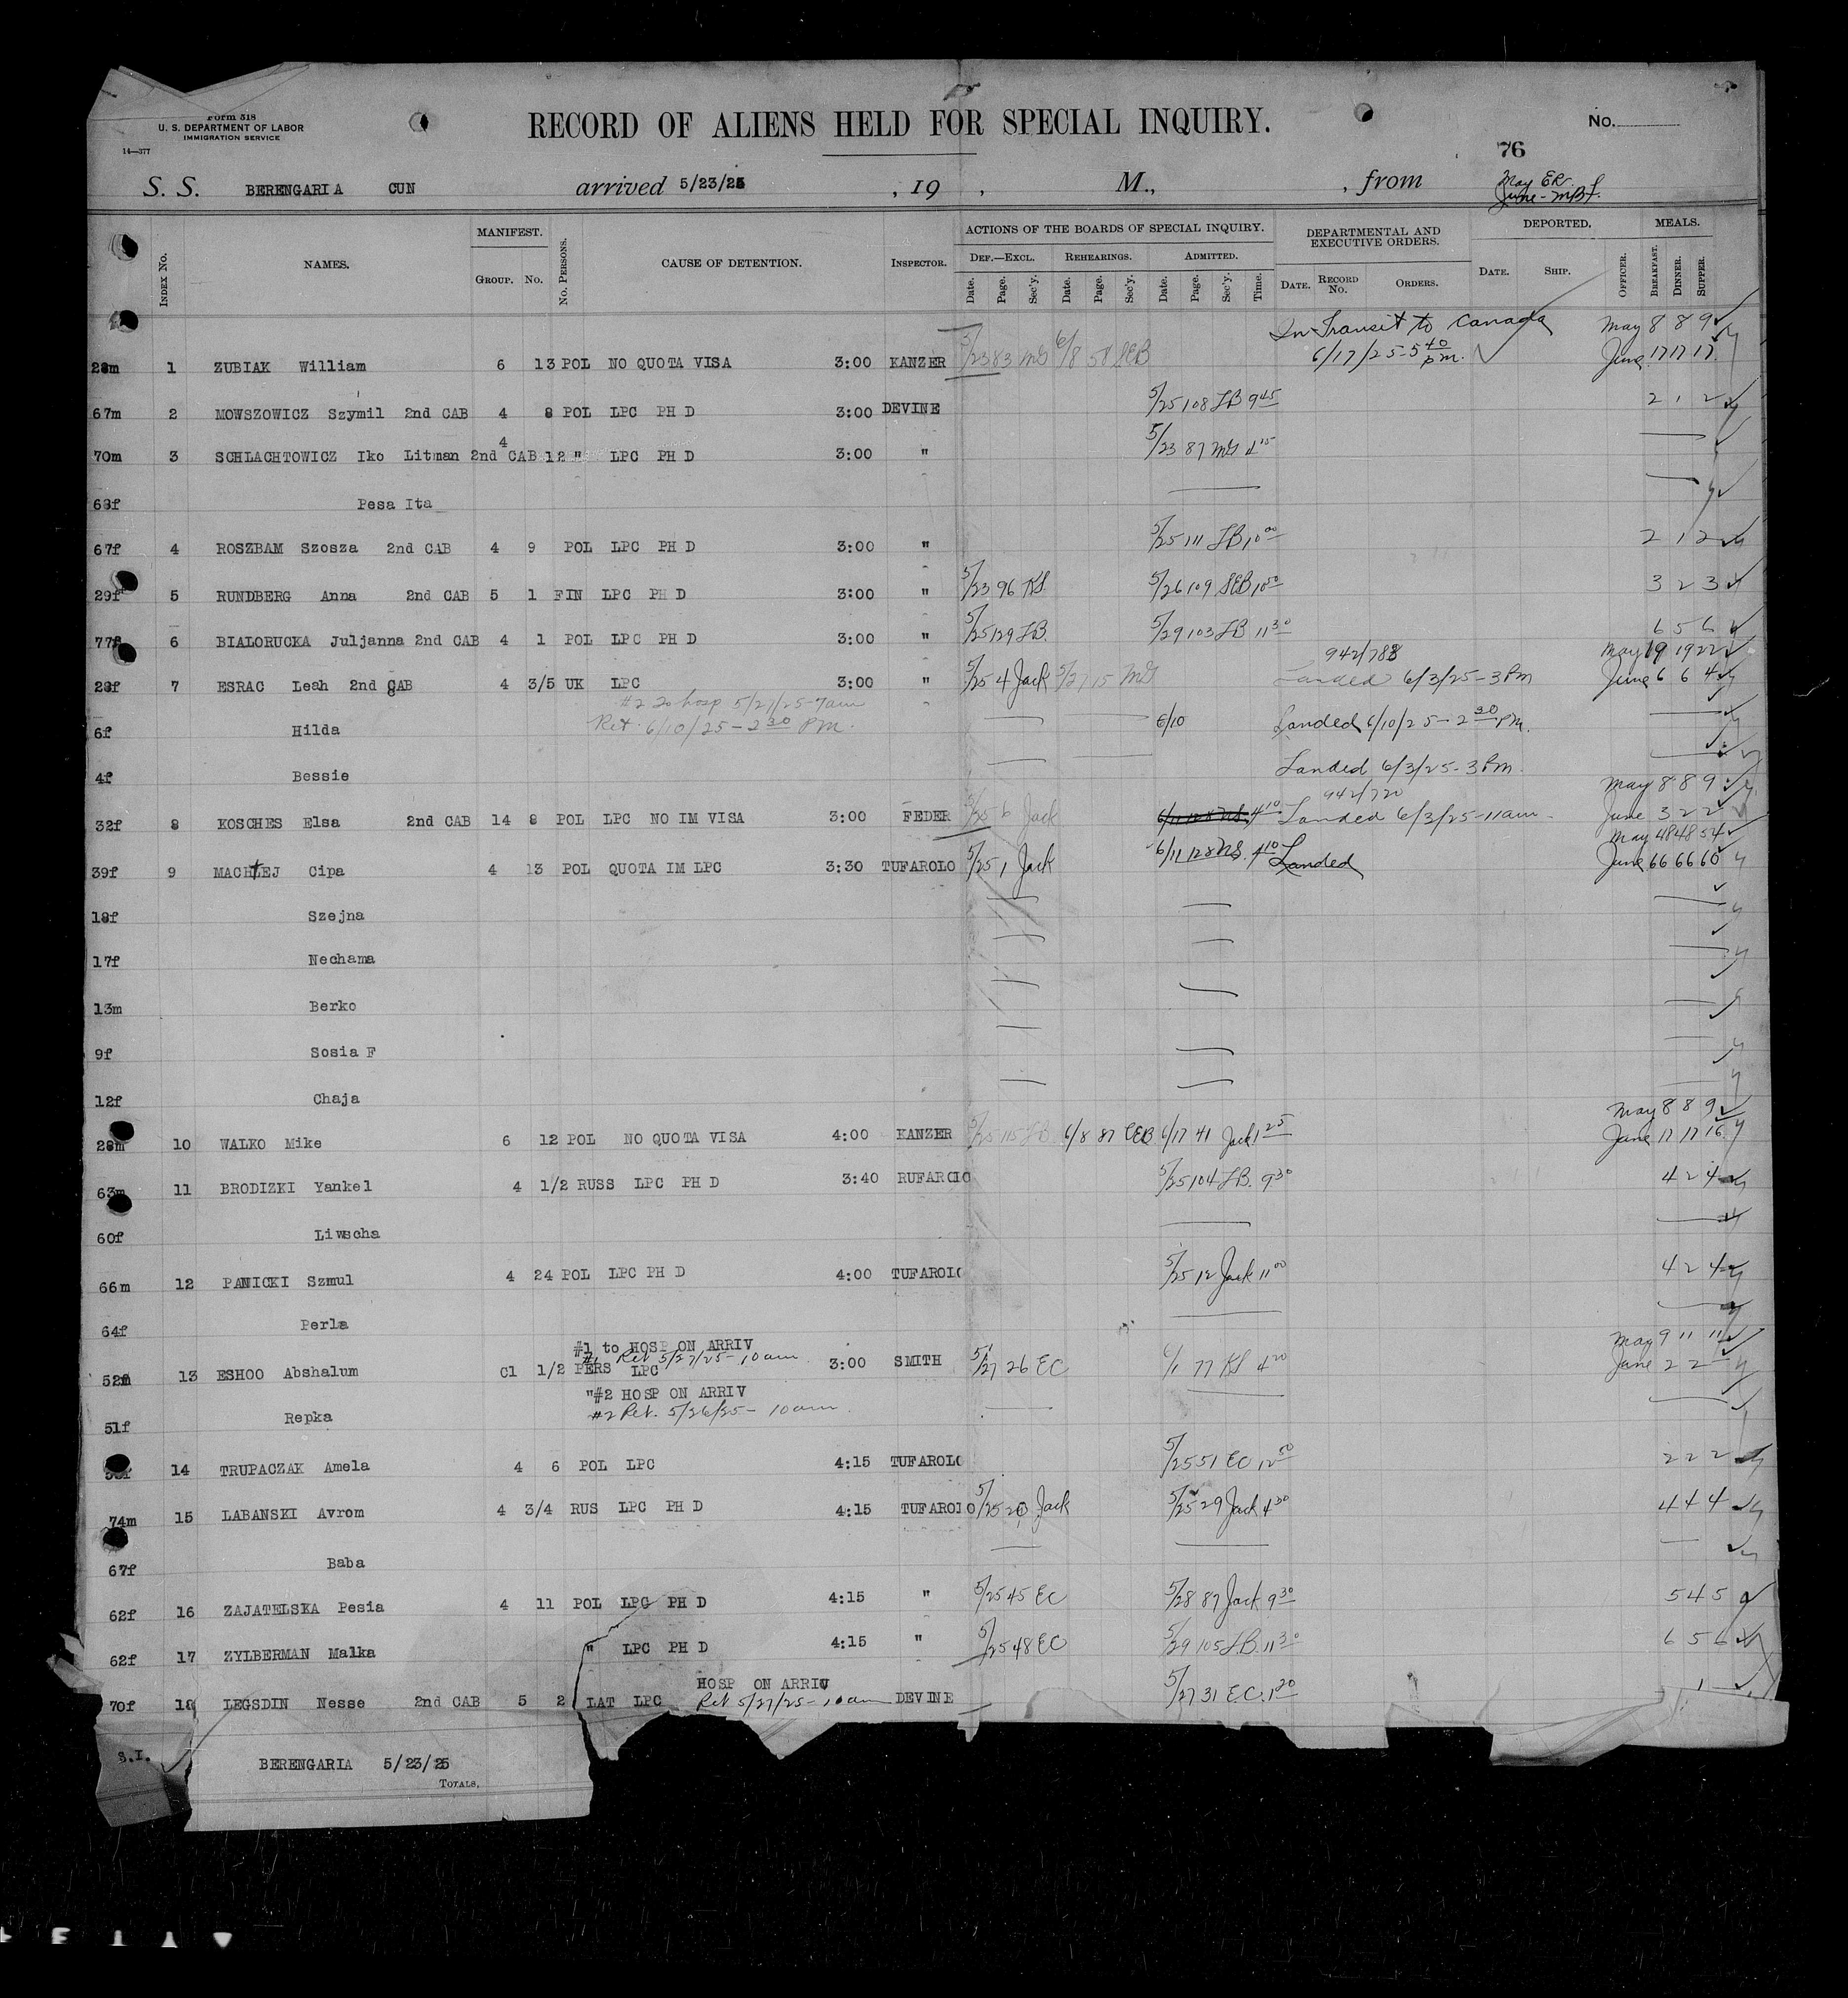 Form 518
U. S. DEPARTMENT OF LABOR
IMMIGRATION SERVICE
14—377
RECORD OF ALIENS HELD FOR SPECIAL INQUIRY.
No.
76
S. S. BERENGARIA CUN arrived 5/23/25, 19 , M., , from
May ER
June - MBF.
INDEX No. NAMES. MANIFEST. GROUP. No. No. PERSONS. CAUSE OF DETENTION. INSPECTOR. ACTIONS OF THE BOARDS OF SPECIAL INQUIRY. DEPARTMENTAL AND EXECUTIVE ORDERS. DEPORTED. MEALS.
DEF.—EXCL. REHEARINGS. ADMITTED.
Date. Page. Sec'y. Date. Page. Sec'y. Date. Page. Sec'y. Time. DATE. RECORD No. ORDERS. DATE. SHIP. OFFICER. BREAKFAST. DINNER. SUPPER.
In-Transit to Canada May 8 8 9
28m 1 ZUBIAK William 6 13 POL NO QUOTA VISA 3:00 KANZER 5/23 83 MG 6/8 58 SEB 6/17/25-5 40 pm. June 17 17 17
67m 2 MOWSZOWICZ Szymil 2nd CAB 4 8 POL LPC PH D 3:00 DEVINE 5/25 108 LB 9 45 2 1 2
70m 3 SCHLACHTOWICZ Iko Litman 2nd CAB 4 12 " LPC PH D 3:00 " 5/23 87 MG 4 15
68f Pesa Ita
67f 4 ROSZBAM Szosza 2nd CAB 4 9 POL LPC PH D 3:00 " 5/25 111 LB 10 00 2 1 2
29f 5 RUNDBERG Anna 2nd CAB 5 1 FIN LPC PH D 3:00 " 5/23 96 KS 5/26 109 SEB 10 50 3 2 3
77f 6 BIALORUCKA Juljanna 2nd CAB 4 1 POL LPC PH D 3:00 " 5/25 129 LB. 5/29 103 LB 11 30 6 5 6
942/783 May 19 19 22
28f 7 ESRAC Leah 2nd CAB 4 3/5 UK LPC 3:00 " 5/25 4 Jack 5/27 15 MG Landed 6/3/25-3 Pm June 6 6 4
#2 To hosp 5/27/25-7am
6f Hilda Ret. 6/10/25-2 30 PM. 6/10 Landed 6/10/25-2 30 PM.
4f Bessie Landed 6/3/25-3 Pm.
942/720 May 8 8 9
32f 8 KOSCHES Elsa 2nd CAB 14 8 POL LPC NO IM VISA 3:00 FEDER 5/25 6 Jack 6/11 128 NS. 4 10 Landed 6/3/25-11am - June 3 2 2
May 48 48 54
39f 9 MACHLEJ Cipa 4 13 POL QUOTA IM LPC 3:30 TUFAROLO 5/25 1 Jack 6/11 128 NS. 4 10 Landed June 66 66 60
18f Szejna
17f Nechama
13m Berko
9f Sosia F
12f Chaja
May 8 8 9
28m 10 WALKO Mike 6 12 POL NO QUOTA VISA 4:00 KANZER 5/25 115 LB 6/8 87 SEB 6/17 41 Jack 1 25 June 17 17 16
63m 11 BRODIZKI Yankel 4 1/2 RUSS LPC PH D 3:40 RUFARCIO 5/25 104 LB. 9 30 4 2 4
60f Liwscha
66m 12 PANICKI Szmul 4 24 POL LPC PH D 4:00 TUFAROLO 5/25 12 Jack 11 00 4 2 4
64f Perla
#1 to HOSP ON ARRIV May 9 11 11
#1 Ret 5/27/25-10am
52m 13 ESHOO Abshalum Cl 1/2 PERS LPC 3:00 SMITH 5/27 26 EC 6/1 77 KS 4 20 June 2 2
"#2 HOSP ON ARRIV
51f Repka #2 Ret. 5/26/25- 10am.
14 TRUPACZAK Amela 4 6 POL LPC 4:15 TUFAROLO 5/25 51 EC 12 50 2 2 2
74m 15 LABANSKI Avrom 4 3/4 RUS LPC PH D 4:15 TUFAROLO 5/25 20 Jack 5/25 29 Jack 4 30 4 4 4
67f Baba
62f 16 ZAJATELSKA Pesia 4 11 POL LPC PH D 4:15 " 5/25 45 EC 5/28 87 Jack 9 30 5 4 5
62f 17 ZYLBERMAN Malka " LPC PH D 4:15 " 5/25 48 EC 5/29 105 LB. 11 30 6 5 6
HOSP ON ARRIV
70f 18 LEGSDIN Nesse 2nd CAB 5 2 LAT LPC Ret 5/27/25-10am DEVINE 5/27 31 EC. 1 20 1
S.I. BERENGARIA 5/23/25
TOTALS,